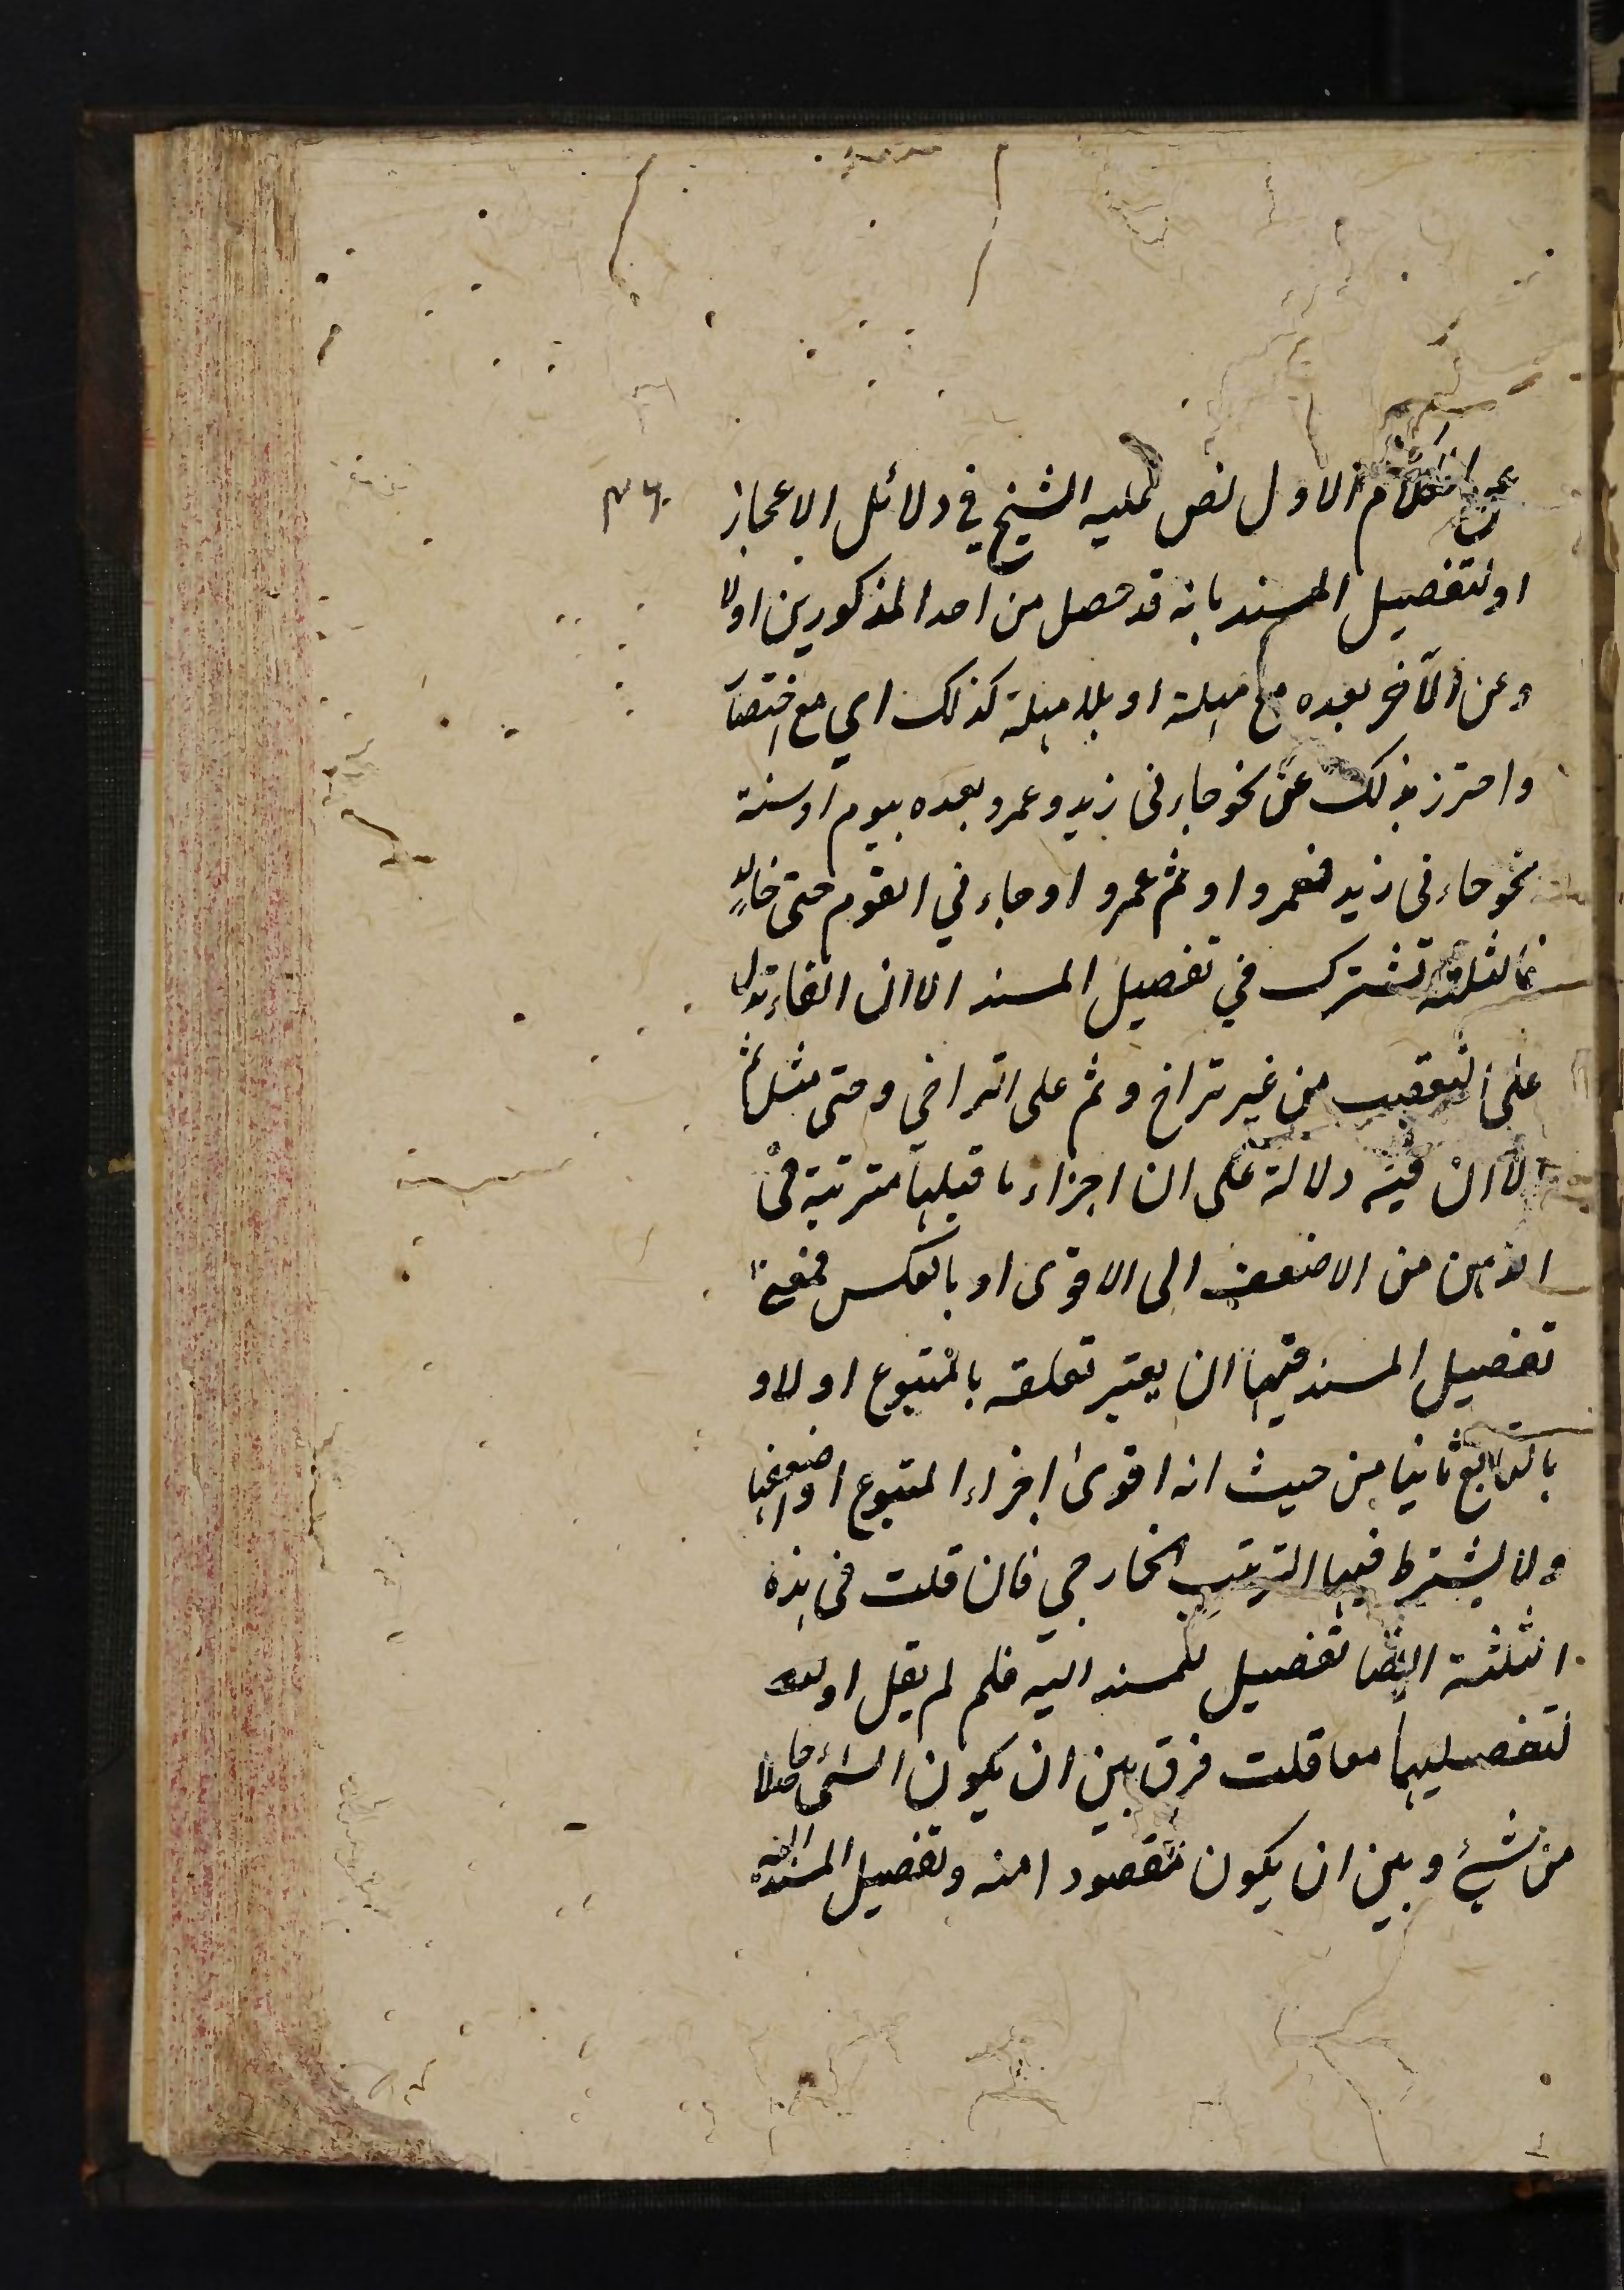 عن الكلام الاول نص عليه الشيخ في دلائل الاعجاز
او لتفصيل المسند بانه قد حصل من احد المذكورين اولا
وعن الآخر بعده مع مهلة او بلا مهلة كذلك اي مع اختصا
واحترز بذلك عن نحو جاءنى زيد وعمرو بعده بيوم او سنة
نحو جاءنى زيد فعمرو او ثم عمرو او جاءني القوم حتى خالد
فالثلثة تشترك في تفصيل المسند الا ان الفاء تدل
على التعقيب من غير تراخ وثم على التراخي وحتى مثل ثم
الا ان فيه دلالة على ان اجزاء ما قبلها مترتبة فى
الذهن من الاضعف الى الاقوى او بالعكس فمعنى
تفصيل المسند فيها ان يعتبر تعلقه بالمتبوع اولا و
بالتابع ثانيا من حيث انه اقوى اجزاء المتبوع او اضعفها
ولا يشترط فيها الترتيب الخارجي فان قلت فى هذه
الثلثة ايضا تفصيل للمسند اليه فلم لم يقل او
لتفصيلهما معا قلت فرق بين ان يكون الشئ حاصلا
من شئ وبين ان يكون مقصودا منه وتفصيل المسند اليه